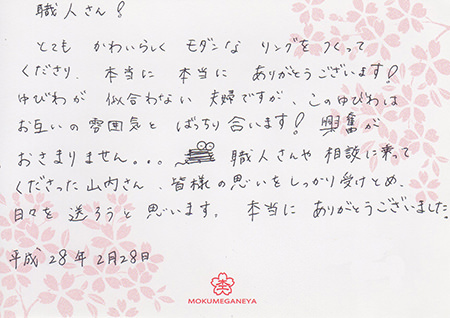 職人さん!
とても かわいらしく モダンな リングを つくって
くださり、本当に 本当に ありがとうございます!
ゆびわが 似合わない 夫婦ですが、このゆびわは
お互いの 雰囲気と ばっちり 合います! 興奮が
おさまりません。。。 職人さんや 相談に乗って
くださった 山内さん、皆様の 思いを しっかり 受けとめ、
日々を 送ろうと 思います。 本当に ありがとうございました。
平成 28年 2月28日
MOKUMEGANEYA